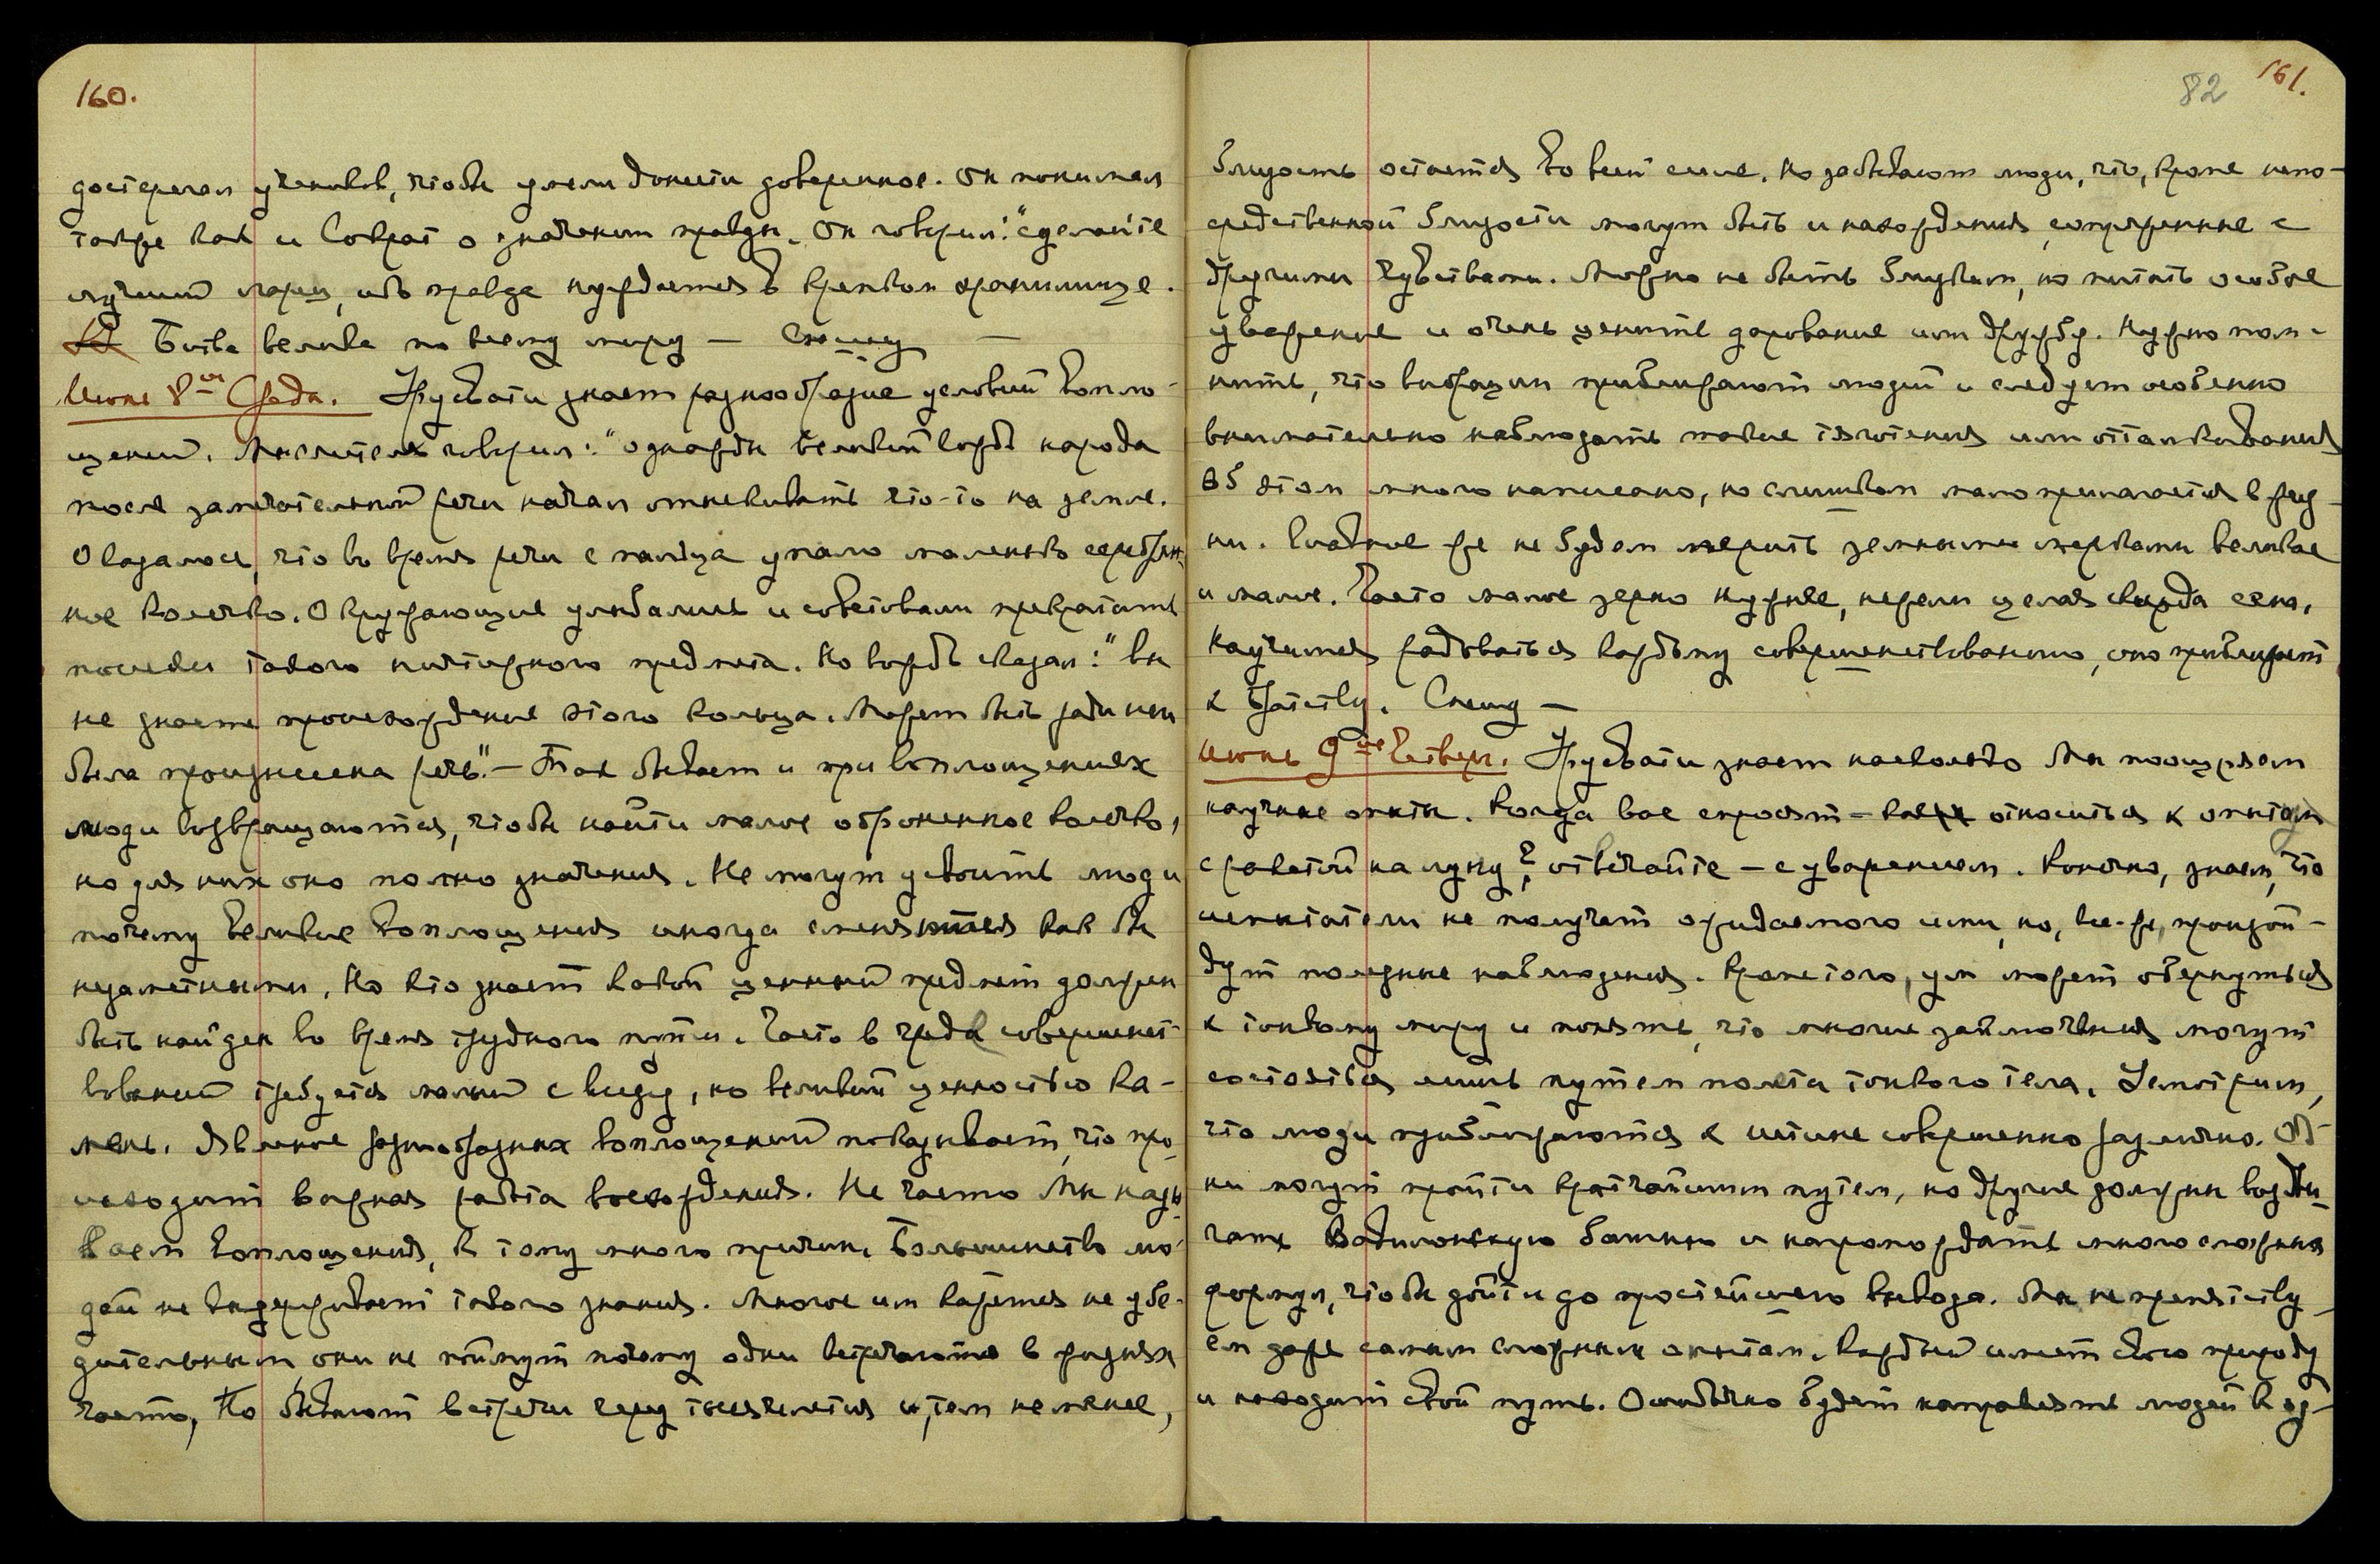 160.
достерегал учеников, чтобы умели донести доверенное. Он понимал
также как и Сократ о значении правды. Он говорил: "сделайте
лучший ларец, ибо правда нуждается в крепком хранилище.
Битва велика по всему миру — Спешу —
Июнь 8ое Среда. Урусвати знает разнообразие условий вопло-
щений. Мыслитель говорил: "однажды великий вождь народа
после замечательной речи начал отыскивать что-то на земле.
Оказалось, что во время речи с пальца упало маленько серебрян-
ное колечко. Окружающие улыбались и советовали прекратить
поиски такого ничтожного предмета. Но вождь сказал: "вы
не знаете происхождение этого кольца. Может быть ради него
была произнесена речь". — Так бывает и при воплощениях
люди возвращаются, чтобы найти малое оброненное колечко,
но для них оно полно значения. Не могут усвоить люди
почему великие воплощения иногда сменяются как бы
незаметными. Но кто знает какой ценный предмет должен
быть найден во время трудного пути. Часто в чреде совершенст-
вований требуется малый с виду, но великий ценностью ка-
мень. Явление разнообразных воплощений показывает, что про
исходит важная работа восхождения. Не часто Мы назы-
ваем воплощения, к тому много причин. Большинство лю-
дей не выдерживает такого знания. Многое им кажется не убе-
дительным они не поймут почему одни встречаются в жизнях
часто, Но бывают встречи через тысячелетия и, тем не менее,
82 161.
близость остается во всей силе. Но забывают люди, что, кроме непо-
средственной близости могут быть и нахождения, сопряженные с
другими чувствами. Можно не быть близким, но питать особое
уважение и очень ценить дарование или дружбу. Нужно пом-
нить, что вибрации приближают людей и следует особенно
внимательно наблюдать такие тяготения или отталкивания
Об этом много написано, но слишком мало прилагается в жиз-
ни. Главное же не будем мерить земными мерками великое
и малое. Часто малое зерно нужнее, нежели целая скирда сена.
Научимся радоваться каждому совершенствованию, оно приближает
к Братству. Спешу —
Июнь 9ое Четверг. Урусвати знает насколько Мы поощряем
научные опыты. Когда вас спросят — как относиться к опытам
с ракетой на луну?, отвечайте — с уважением. Конечно, знаем, что
испытатели не получат ожидаемого ими, но, все-же, произой-
дут полезные наблюдения. Кроме того, ум может обернуться
к тонкому миру и понять, что многие заключения могут
состояться лишь путем полета тонкого тела. Усмотрим,
что люди приближаются к истине совершенно различно. Од-
ни могут пройти кратчайшим путем, но другие должны воздви-
гать Вавилонскую башню и нагромождать многосложныя
формулы, чтобы дойти до простейшего вывода. Мы не препятству-
ем даже самым сложным опытам. Каждый имеет свою природу
и находит свой путь. Ошибочно будет направлять людей к од-